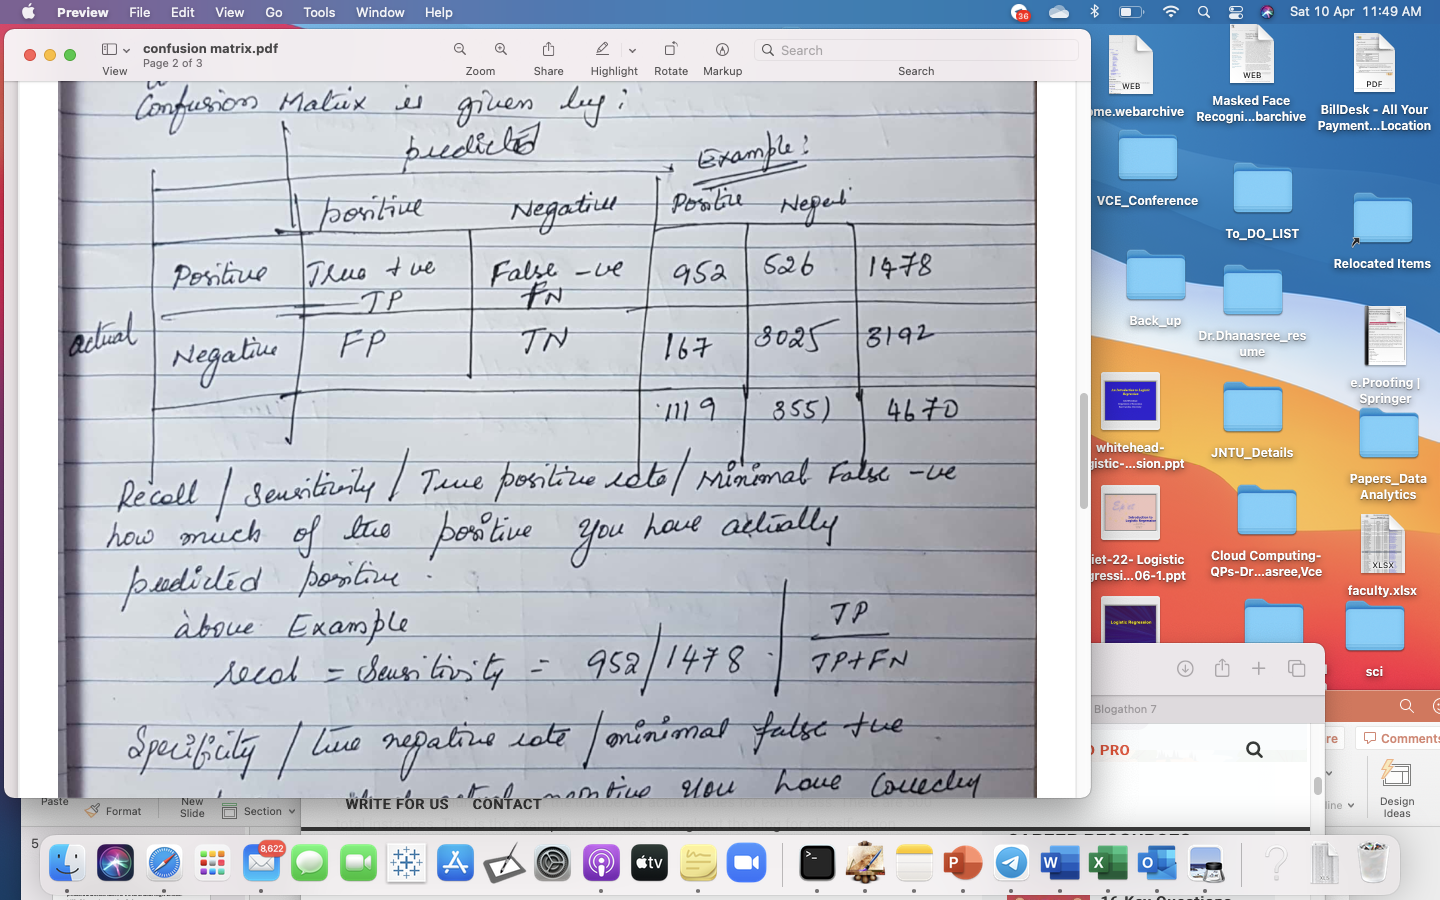 Preview File Edit View Go Tools Window Help
36
Sat 10 Apr 11:49 AM
confusion matrix.pdf
Page 2 of 3
View
Zoom
Share
Highlight
Rotate
Markup
Search
Search
Confusion Matrix is given by:
predicted
Example:
positive Negative Positive
Positive True +ve False -ve 952 526 1478
TP FN
actual
Negative FP TN 167 3025 3192
1119 3551 4670
Recall / Sensitivity / True positive rate / Minimal False -ve
how much of the positive you have actually
predicted positive.
above Example
recal = Sensitivity = 952/1478
TP
TP+FN
Specificity / true negative rate / minimal false +ve
negative you have
WEB
ome.webarchive
WEB
Masked Face
Recogni...barchive
PDF
BillDesk - All Your
Payment...Location
VCE_Conference
To_DO_LIST
Relocated Items
Back_up
Dr.Dhanasree_res
ume
e.Proofing |
Springer
whitehead-
gistic-...sion.ppt
JNTU_Details
Papers_Data
Analytics
iet-22- Logistic
gressi...06-1.ppt
Cloud Computing-
QPs-Dr...asree,Vce
XLSX
faculty.xlsx
Logistic Regression
sci
Blogathon 7
PRO
re
Comments
Design
Ideas
line
Paste
Format
New
Slide
Section
WRITE FOR US CONTACT
5
CAREER RESOURCES
8,622
tv
16 Key Questions
XLS